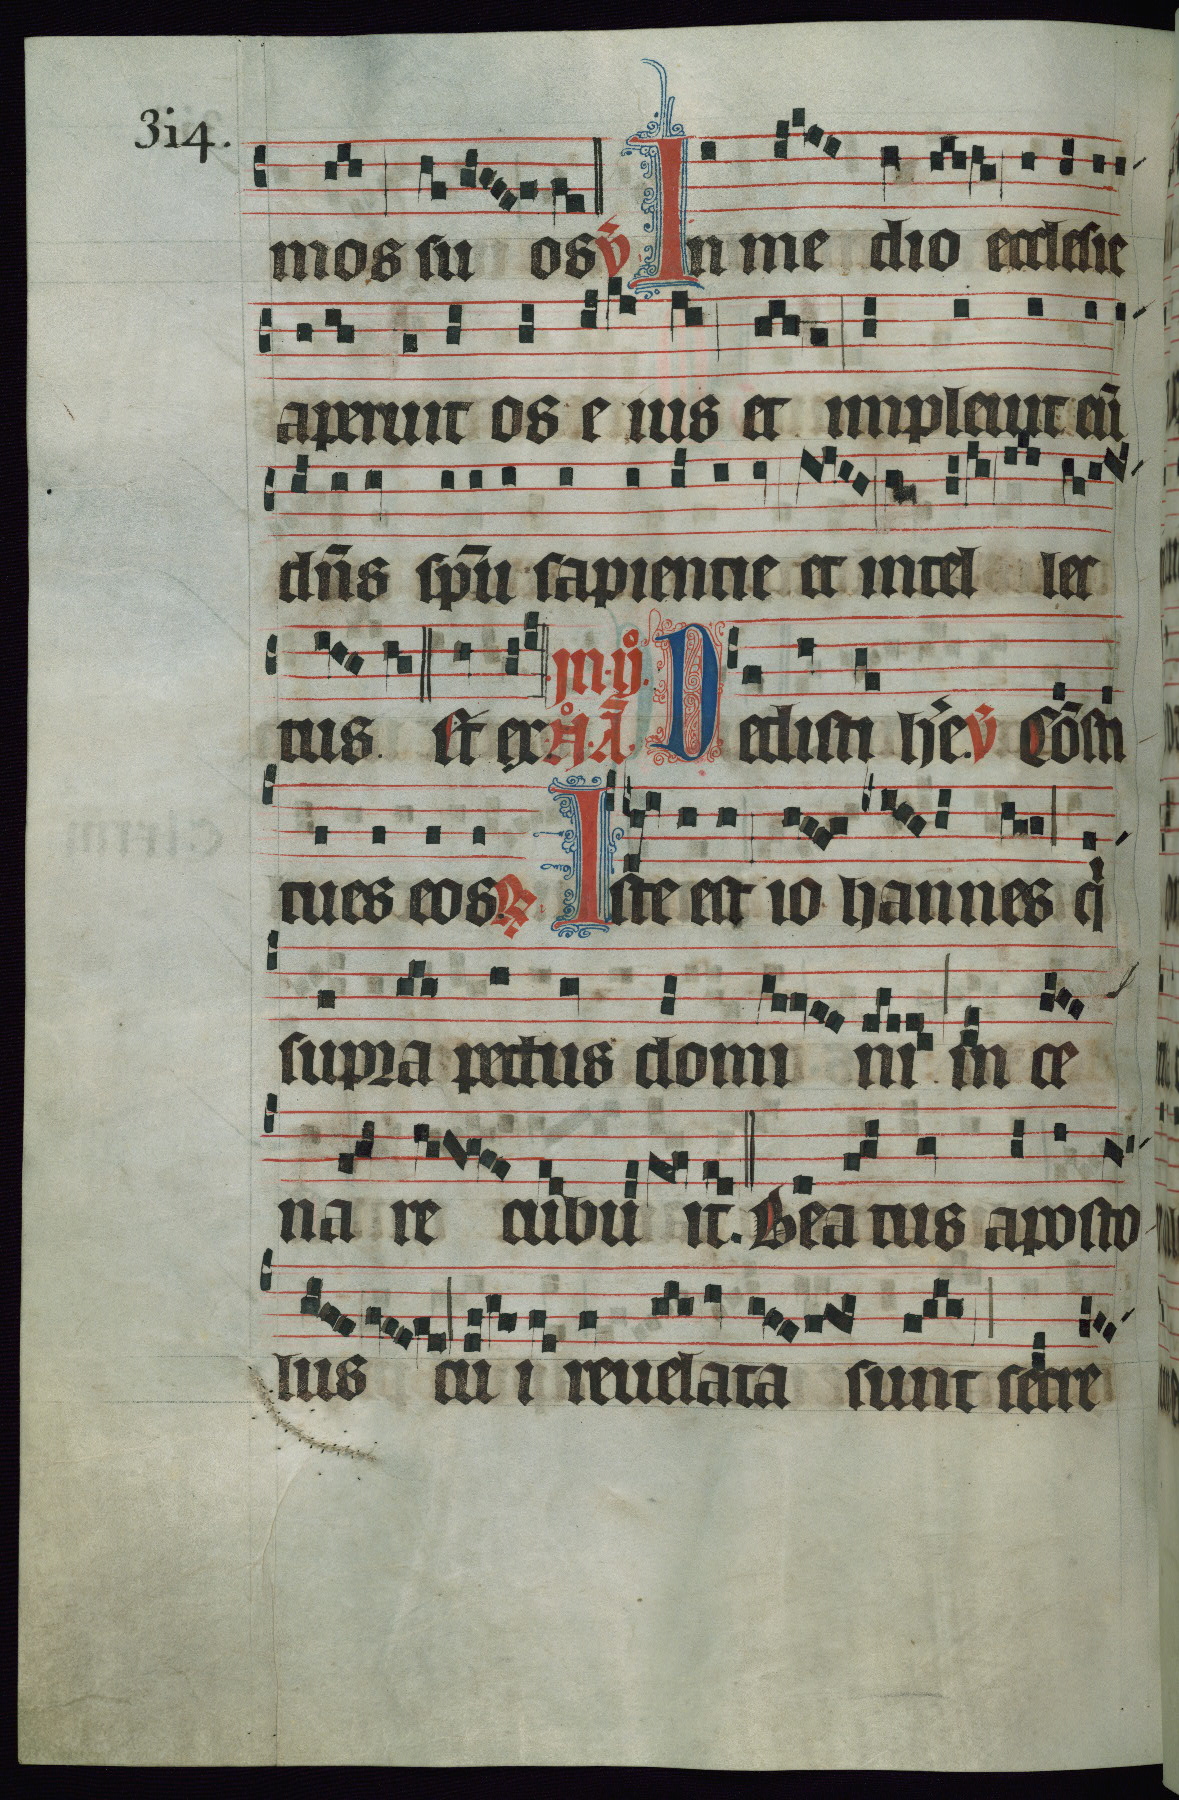 3i4.
mos su os v̄ In me dio ecclesie
aperuit os e ius et impleuit eū
dn̄s sp̄u sapientie et intel lec
tus. St et in ijo
Ā Dedisti h̄e. v̄ Cōsti
tues eos. R Iste est io hannes q
supra pectus domi ni in ce
na re cubu it. Bea tus aposto
lus cu i reuelata sunt secre